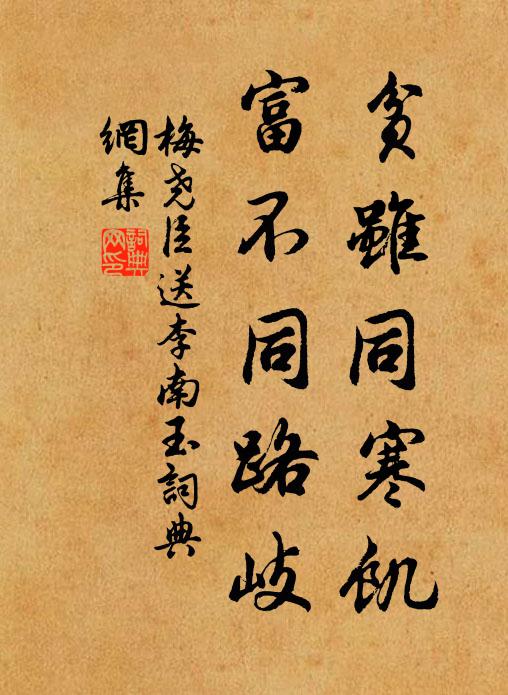 貧雖同寒飢
富不同路歧
梅堯臣送李南玉詞典
網集
詞典
网印